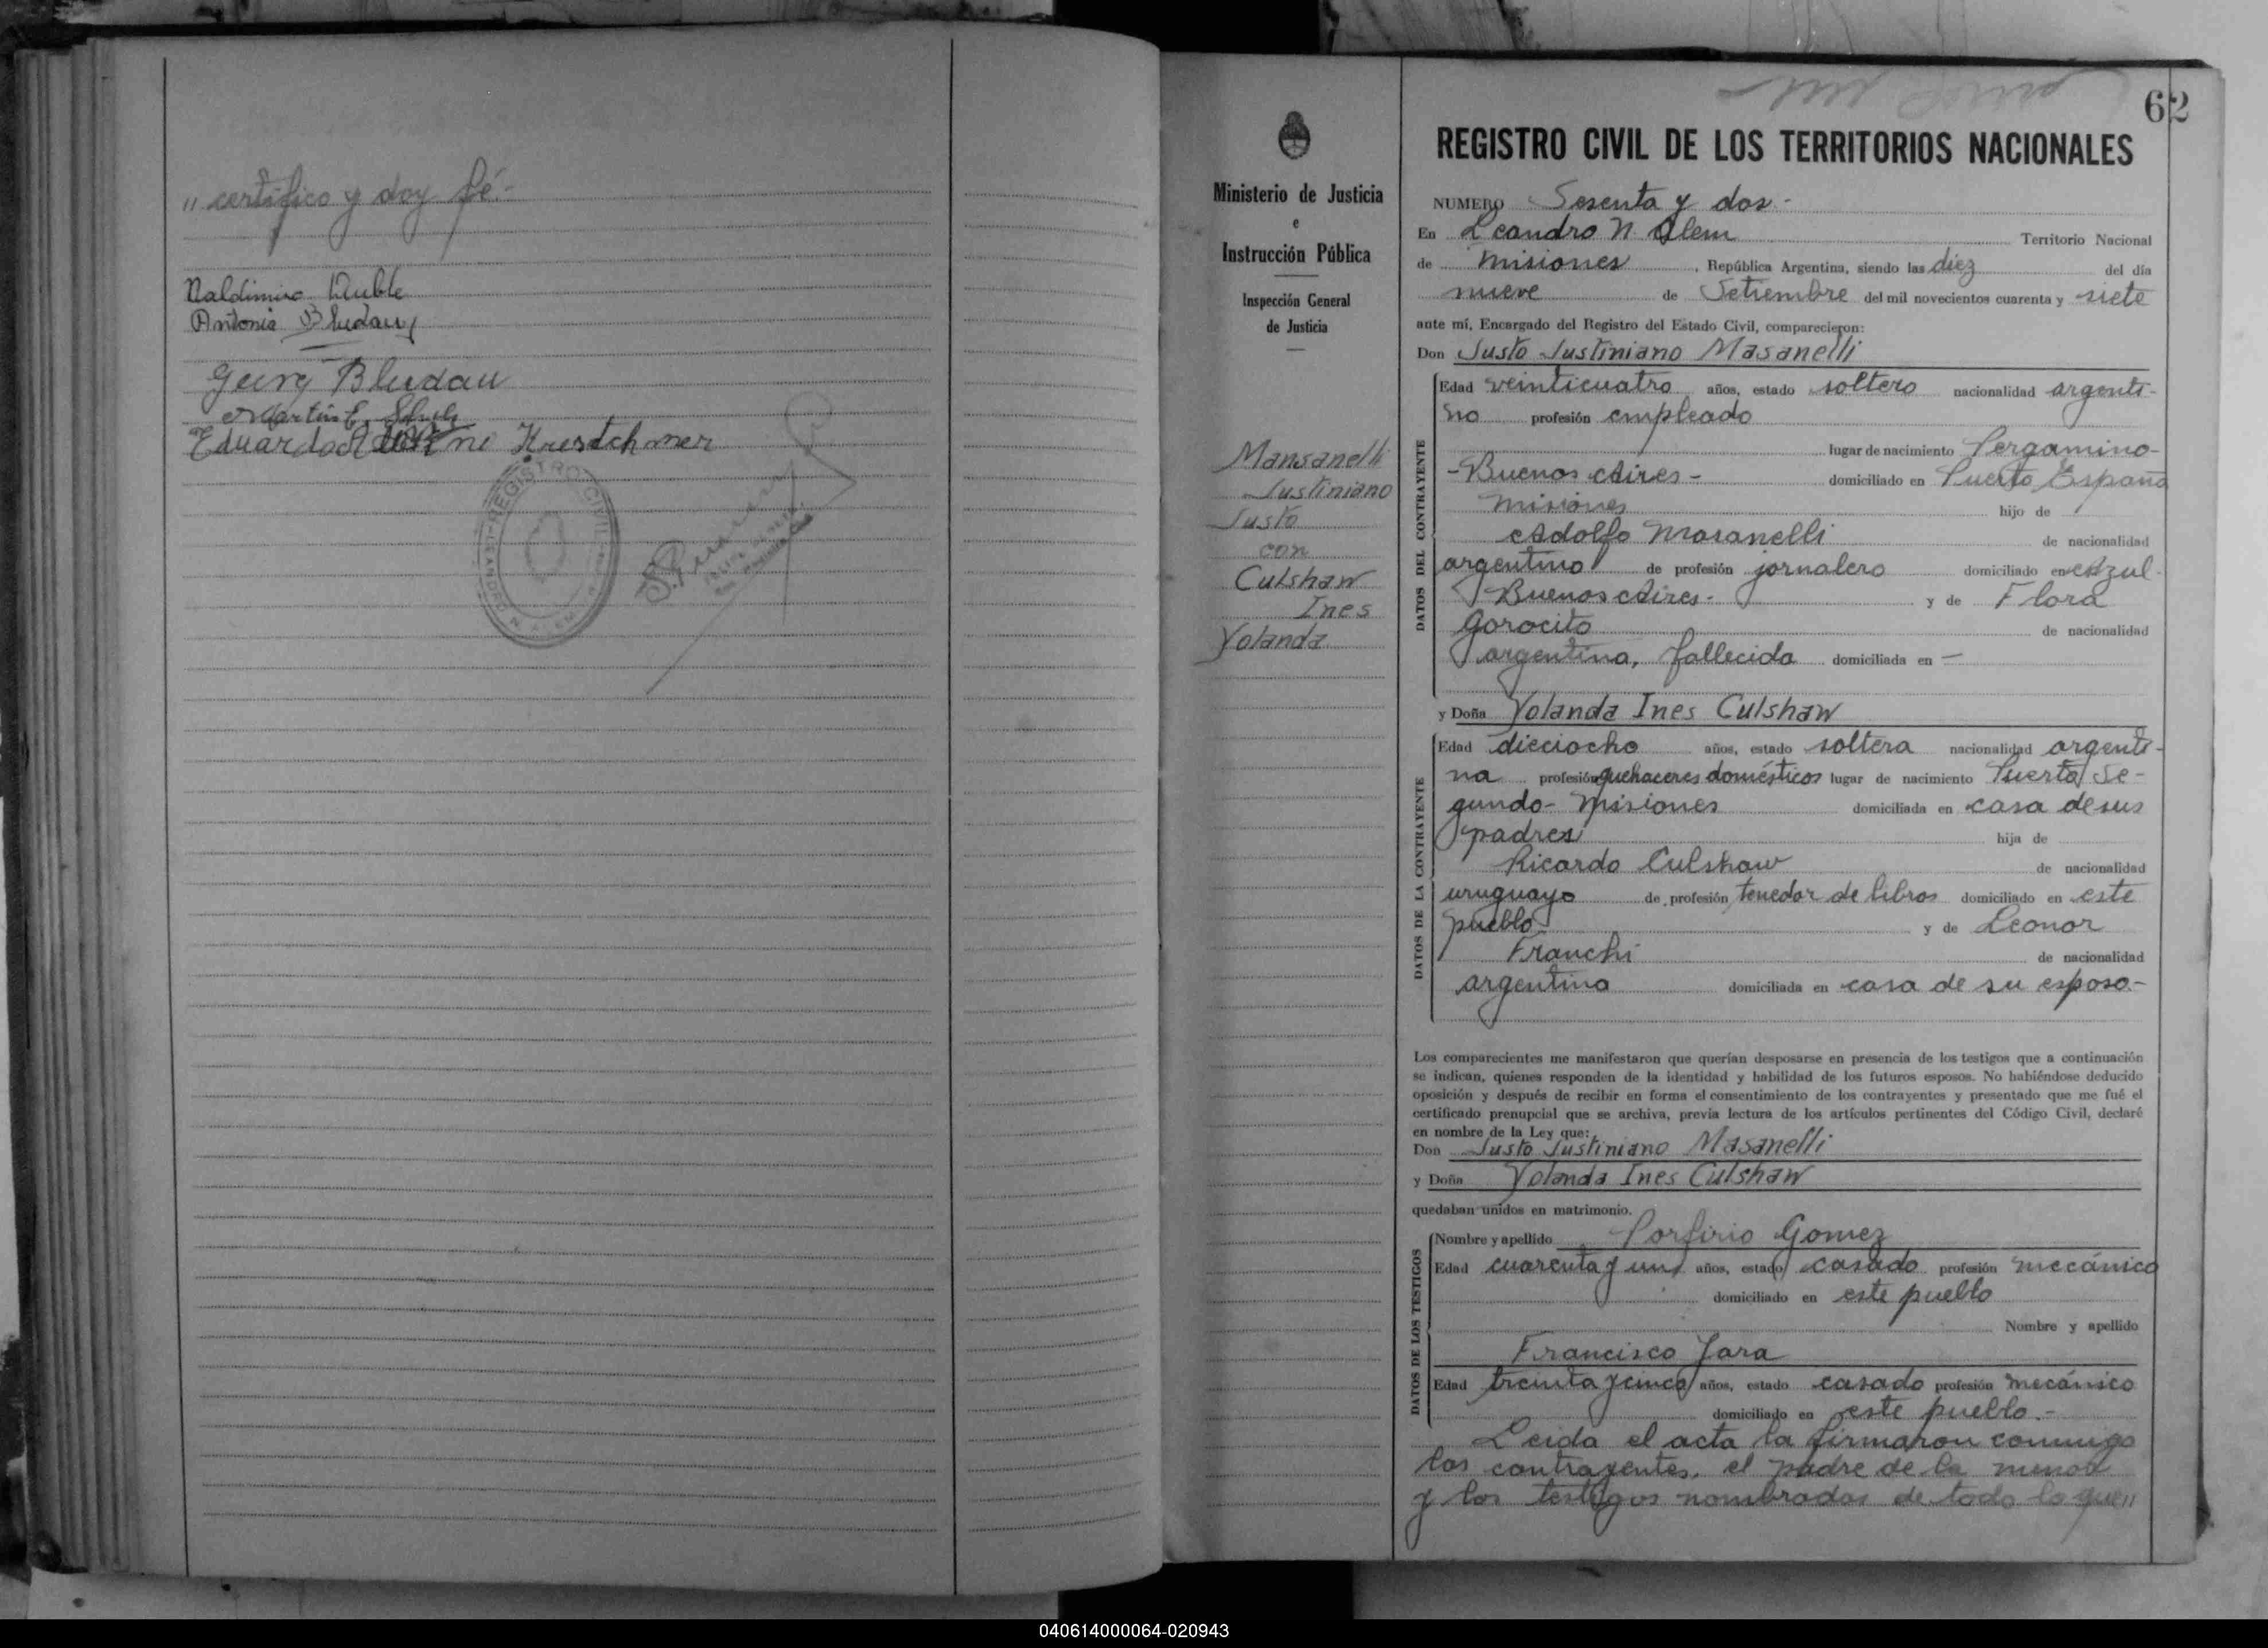 „ certifico y doy fé.-
Antonia Bludau
Georg Bludau
Eduardo Krestchmer
REGISTRO CIVIL
LEANDRO N. ALEM
62
Ministerio de Justicia
e
Instrucción Pública
Inspección General
de Justicia
Mansanelli
Justiniano
Justo
con
Culshaw
Ines
Yolanda
REGISTRO CIVIL DE LOS TERRITORIOS NACIONALES
NUMERO Sesenta y dos.-
En Leandro N. Alem Territorio Nacional
de Misiones, República Argentina, siendo las diez del día
nueve de Setiembre del mil novecientos cuarenta y siete
ante mí, Encargado del Registro del Estado Civil, comparecieron:
Don Justo Justiniano Masanelli
DATOS DEL CONTRAYENTE
Edad veinticuatro años, estado soltero nacionalidad argenti-
no profesión empleado
lugar de nacimiento Pergamino-
-Buenos Aires- domiciliado en Puerto España
Misiones hijo de
Adolfo Masanelli de nacionalidad
argentino de profesión jornalero domiciliado en Azul-
Buenos Aires.- y de Flora
Gorocito de nacionalidad
argentina, fallecida domiciliada en —
y Doña Yolanda Ines Culshaw
DATOS DE LA CONTRAYENTE
Edad dieciocho años, estado soltera nacionalidad argenti-
na profesión quehaceres domésticos lugar de nacimiento Puerto Se-
gundo- Misiones domiciliada en casa de sus
padres hija de
Ricardo Culshaw de nacionalidad
uruguayo de profesión tenedor de libros domiciliado en este
pueblo y de Leonor
Franchi de nacionalidad
argentina domiciliada en casa de su esposo.-
Los comparecientes me manifestaron que querían desposarse en presencia de los testigos que a continuación
se indican, quienes responden de la identidad y habilidad de los futuros esposos. No habiéndose deducido
oposición y después de recibir en forma el consentimiento de los contrayentes y presentado que me fué el
certificado prenupcial que se archiva, previa lectura de los artículos pertinentes del Código Civil, declaré
en nombre de la Ley que:
Don Justo Justiniano Masanelli
y Doña Yolanda Ines Culshaw
quedaban unidos en matrimonio.
DATOS DE LOS TESTIGOS
Nombre y apellido Porfirio Gomez
Edad cuarenta y un años, estado casado profesión mecánico
domiciliado en este pueblo
Nombre y apellido
Francisco Jara
Edad treinta y cinco años, estado casado profesión mecánico
domiciliado en este pueblo.-
Leida el acta la firmaron conmigo
los contrayentes, el padre de la menor
y los testigos nombrados de todo lo que „
040614000064-020943